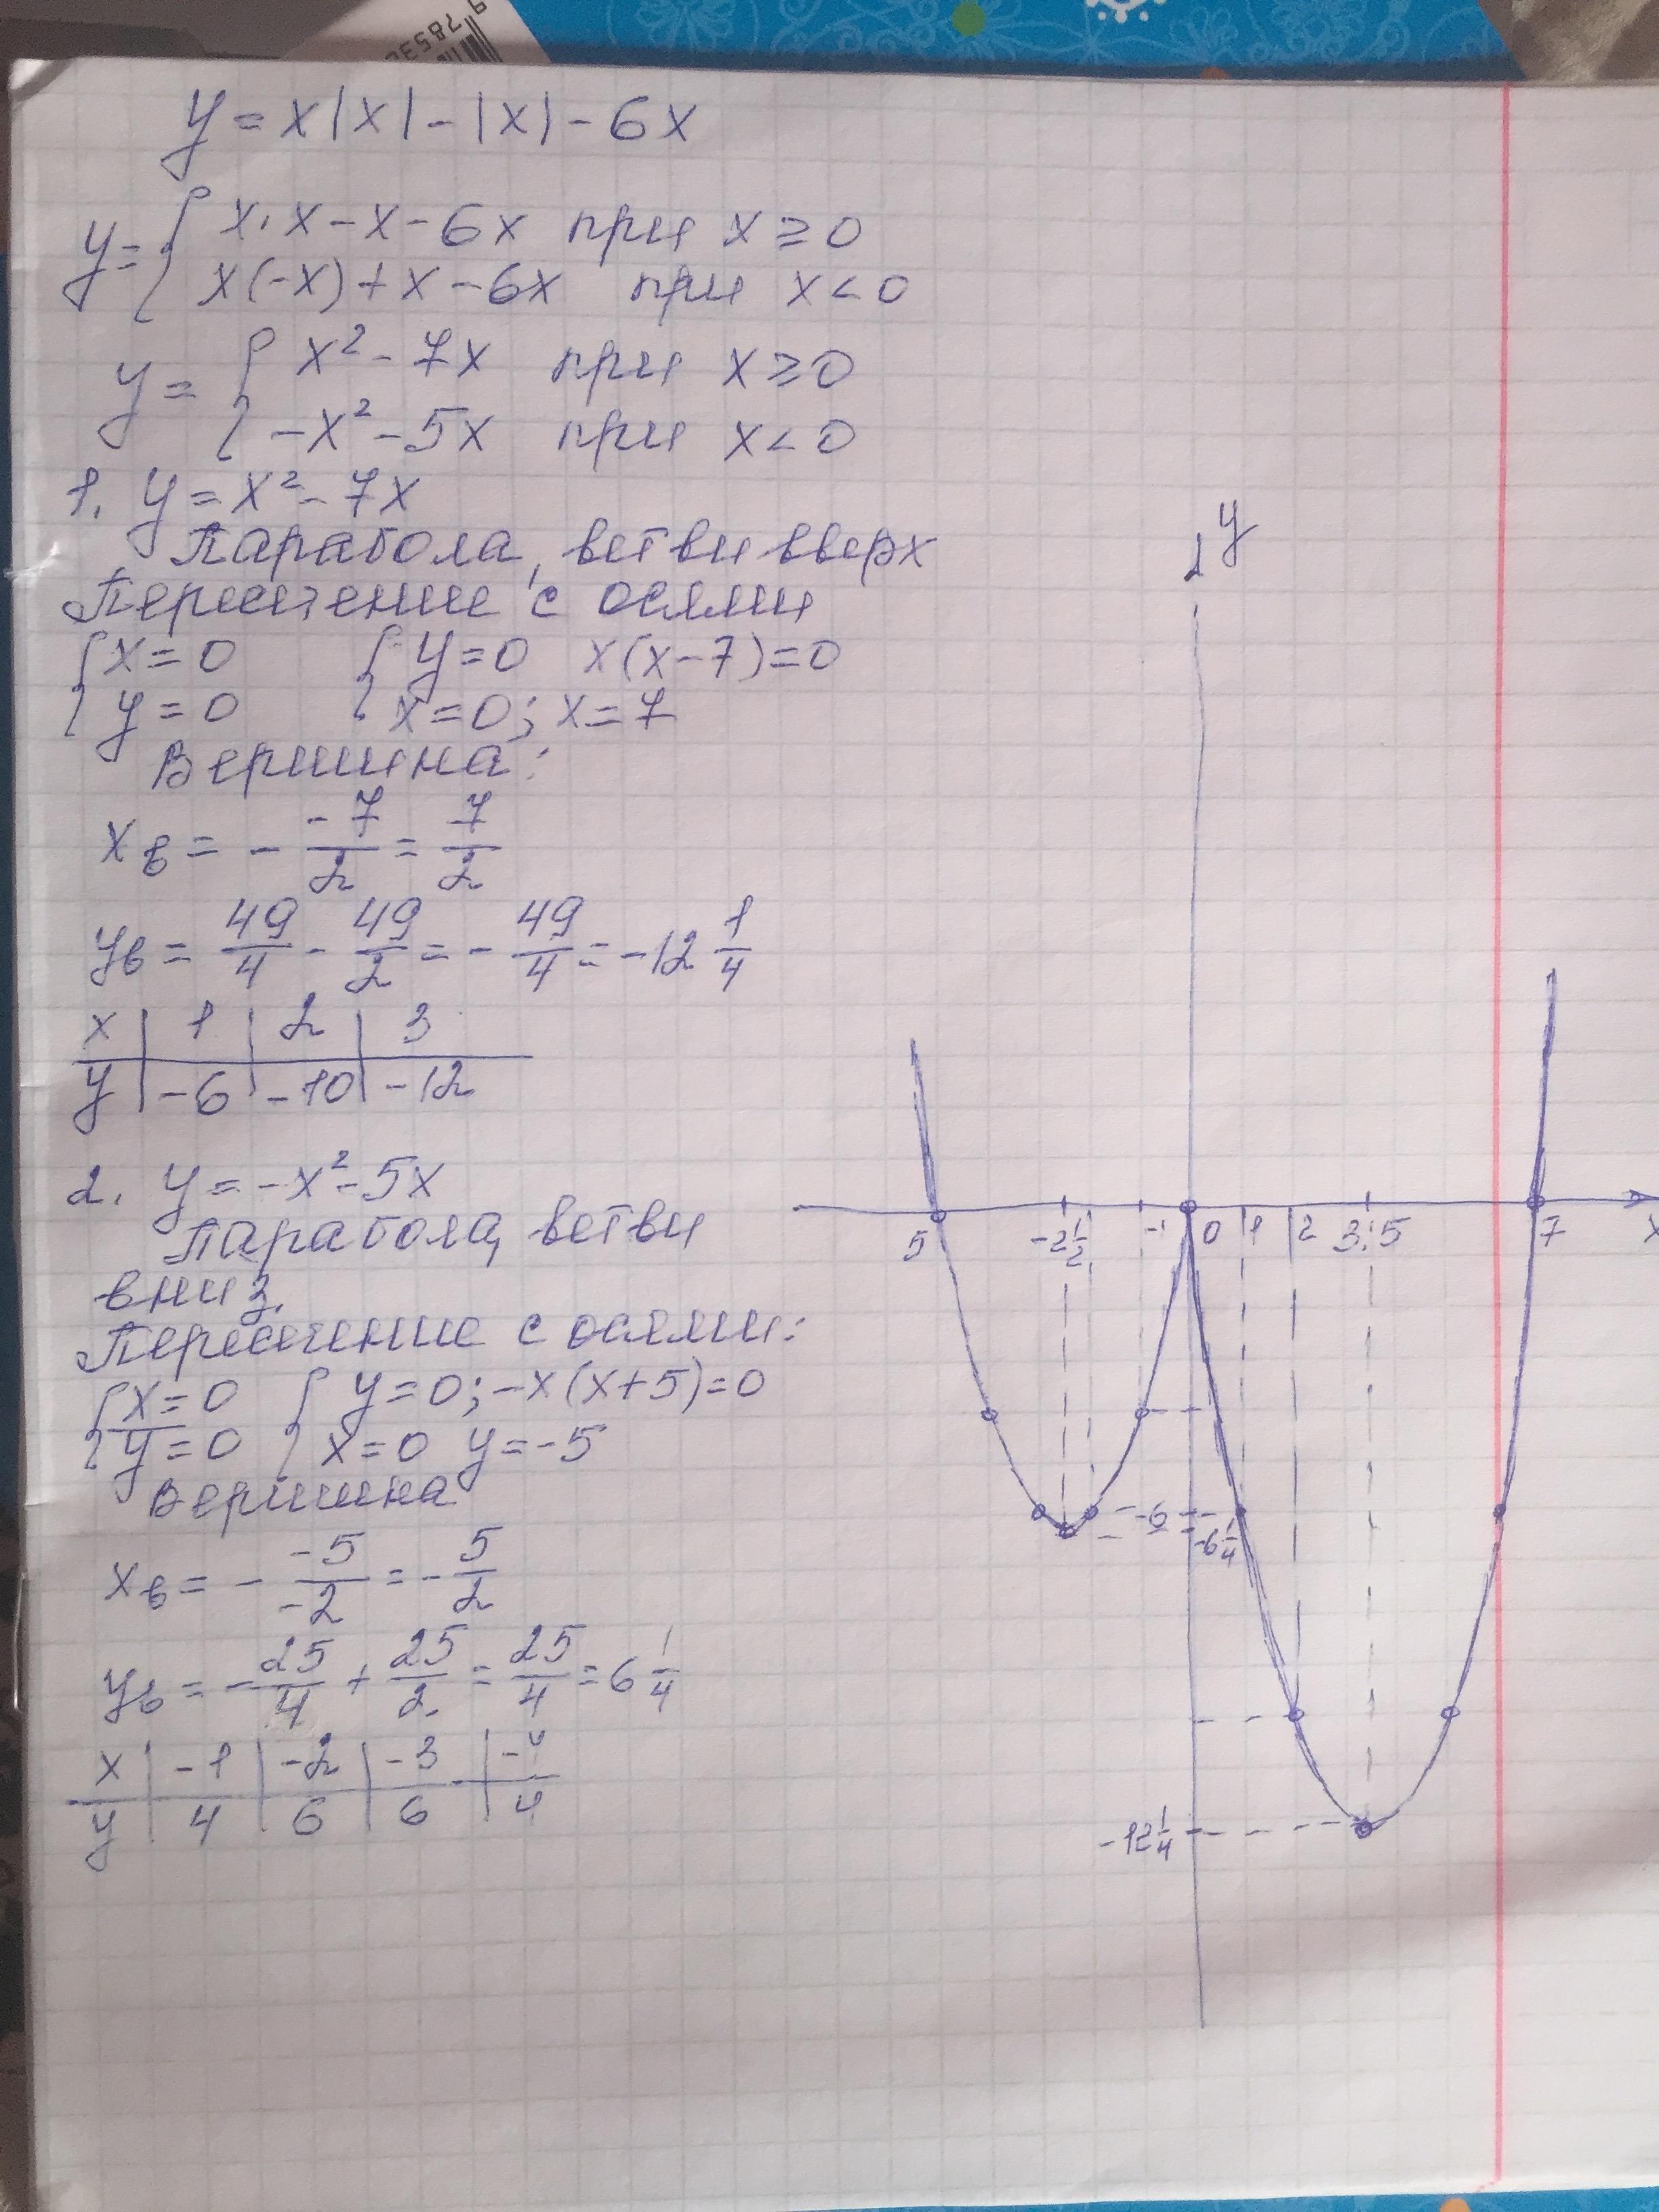 978538
y = x|x| - |x| - 6x
y = { x·x - x - 6x при x ≥ 0
x(-x) + x - 6x при x < 0
y = { x² - 7x при x ≥ 0
-x² - 5x при x < 0
1. y = x² - 7x
Парабола, ветви вверх
Пересечение с осями
{ x = 0 { y = 0 x(x-7) = 0
y = 0 x = 0; x = 7
Вершина:
xв = - -7/2 = 7/2
yв = 49/4 - 49/2 = - 49/4 = -12 1/4
x | 1 | 2 | 3
y | -6 | -10 | -12
2. y = -x² - 5x
Парабола, ветви
вниз.
Пересечение с осями:
{ x = 0 { y = 0; -x(x+5) = 0
y = 0 x = 0 y = -5
Вершина
xв = - -5/-2 = - 5/2
yв = - 25/4 + 25/2 = 25/4 = 6 1/4
x | -1 | -2 | -3 | -4
y | 4 | 6 | 6 | 4
y
5 -2 1/2 -1 0 1 2 3,5 7 x
-6
-6 1/4
-12 1/4